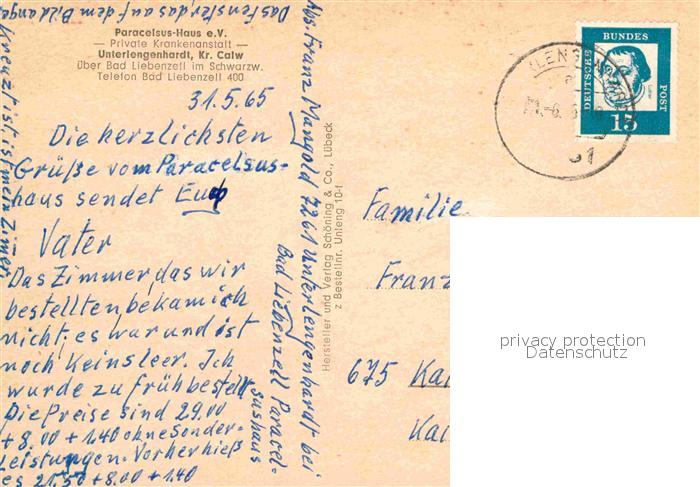 Paracelsus-Haus e.V.
— Private Krankenanstalt —
Unterlengenhardt, Kr. Calw
über Bad Liebenzell im Schwarzw.
Telefon Bad Liebenzell 400
31.5.65
Die herzlichsten
Grüße vom Paracelsus-
haus sendet Euch
Vater
Das Zimmer, das wir
bestellten, bekam ich
nicht; es war und ist
noch keins leer. Ich
wurde zu früh bestellt.
Die Preise sind 29.00
+ 8.00 + 1.40 ohne Sonder-
Leistungen. Vorher hieß
es 21,50 + 8.00 + 1.40
Das Fenster das auf dem Bild ange
kreuzt ist, ist mein Zimer
Abs. Franz Mangold 7261 Unterlengenhardt bei
Bad Liebenzell Paracel-
sushaus
Hersteller und Verlag Schöning & Co., Lübeck
z Bestellnr. Unleng 10-f
DEUTSCHE BUNDES POST
15
Familie
Franz
675 Kai
Kai
privacy protection
Datenschutz